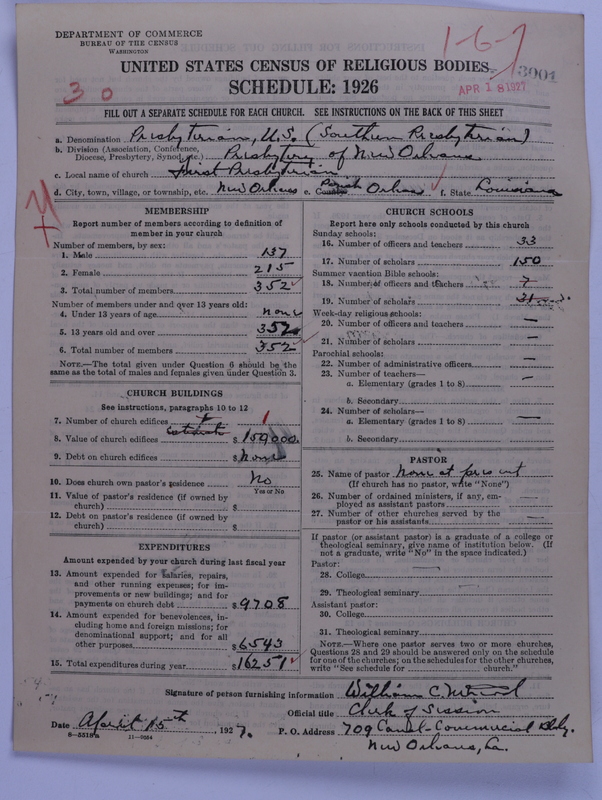 DEPARTMENT OF COMMERCE
BUREAU OF THE CENSUS
WASHINGTON
1-6-7
3001
APR 18 1927
30
UNITED STATES CENSUS OF RELIGIOUS BODIES
SCHEDULE: 1926
FILL OUT A SEPARATE SCHEDULE FOR EACH CHURCH. SEE INSTRUCTIONS ON THE BACK OF THIS SHEET
a. Denomination Presbyterian, U.S. (Southern Presbyterian)
b. Division (Association, Conference,
Diocese, Presbytery, Synod, etc.) Presbytery of New Orleans
c. Local name of church First Presbyterian
d. City, town, village, or township, etc. New Orleans e. County Parish Orleans f. State Louisiana
MEMBERSHIP
Report number of members according to definition of
member in your church
Number of members, by sex:
1. Male 137
2. Female 215
3. Total number of members 352
Number of members under and over 13 years old:
4. Under 13 years of age none
5. 13 years old and over 352
6. Total number of members 352
NOTE.—The total given under Question 6 should be the
same as the total of males and females given under Question 3.
CHURCH BUILDINGS
See instructions, paragraphs 10 to 12
7. Number of church edifices 1
8. Value of church edifices $150000.
9. Debt on church edifices $None
10. Does church own pastor's residence No
Yes or No
11. Value of pastor's residence (if owned by
church) $
12. Debt on pastor's residence (if owned by
church) $
EXPENDITURES
Amount expended by your church during last fiscal year
13. Amount expended for salaries, repairs,
and other running expenses; for im-
provements or new buildings; and for
payments on church debt $9708
14. Amount expended for benevolences, in-
cluding home and foreign missions; for
denominational support; and for all
other purposes $6543
15. Total expenditures during year $16251
CHURCH SCHOOLS
Report here only schools conducted by this church
Sunday schools:
16. Number of officers and teachers 33
17. Number of scholars 150
Summer vacation Bible schools:
18. Number of officers and teachers 7
19. Number of scholars 31
Week-day religious schools:
20. Number of officers and teachers —
21. Number of scholars —
Parochial schools:
22. Number of administrative officers —
23. Number of teachers—
a. Elementary (grades 1 to 8) —
b. Secondary
24. Number of scholars—
a. Elementary (grades 1 to 8) —
b. Secondary
PASTOR
25. Name of pastor None at present
(If church has no pastor, write "None")
26. Number of ordained ministers, if any, em-
ployed as assistant pastors —
27. Number of other churches served by the
pastor or his assistants —
If pastor (or assistant pastor) is a graduate of a college or
theological seminary, give name of institution below. (If
not a graduate, write "No" in the space indicated.)
Pastor:
28. College
29. Theological seminary
Assistant pastor:
30. College
31. Theological seminary
NOTE.—Where one pastor serves two or more churches,
Questions 28 and 29 should be answered only on the schedule
for one of the churches; on the schedules for the other churches,
write "See schedule for church."
Signature of person furnishing information William C.
Official title Clerk of Session
Date April 15th, 1927.
P. O. Address 709 Canal-Commercial Bldg.
New Orleans, La.
8—5518a 11—9564